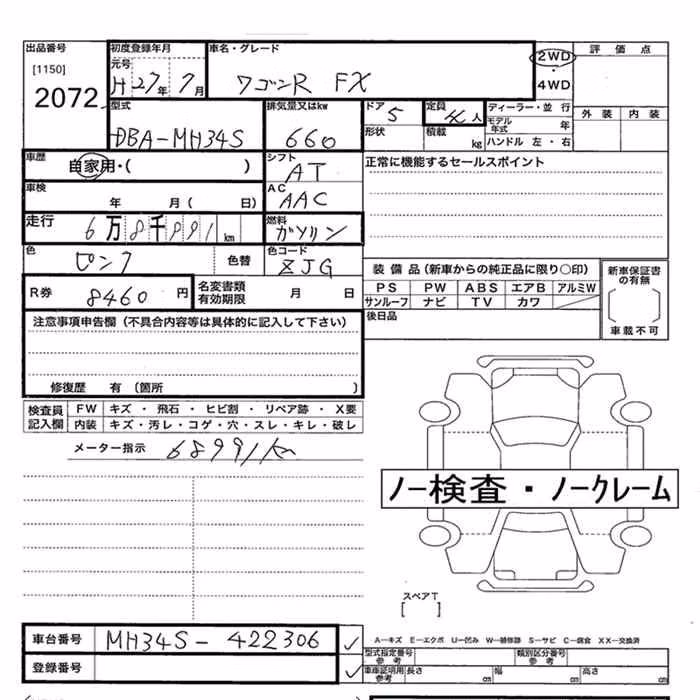 出品番号 初度登録年月 車名・グレード 評価点
[1150] 元号 H27年7月 ワゴンR FX 2WD
2072 ・ 4WD
型式 排気量又はkw ドア 5 定員 4人 ディーラー・並行 外装 内装
DBA-MH34S 660 形状 積載 kg モデル年式 年
ハンドル 左・右
車歴 自家用・( ) シフト AT 正常に機能するセールスポイント
車検 年 月( 日) AC AAC
走行 6万8千991km 燃料 ガソリン
色 ピンク 色替 色コード ZJG
装備品(新車からの純正品に限り○印) 新車保証書の有無
R券 8460円 名変書類有効期限 月 日 PS PW ABS エアB アルミW
サンルーフ ナビ TV カワ
車載不可
注意事項申告欄(不具合内容等は具体的に記入して下さい) 後日品
修復歴 有(箇所 )
検査員 FW キズ・飛石・ヒビ割・リペア跡・X要
記入欄 内装 キズ・汚レ・コゲ・穴・スレ・キレ・破レ
メーター指示 68991km
ノー検査・ノークレーム
スペアT
[ ]
車台番号 MH34S-422306
A-キズ E-エクボ U-凹み W-補修跡 S-サビ C-腐食 XX-交換済
登録番号 型式指定番号 参考 類別区分番号 参考
車庫証明用 参考 長さ cm 幅 cm 高さ cm